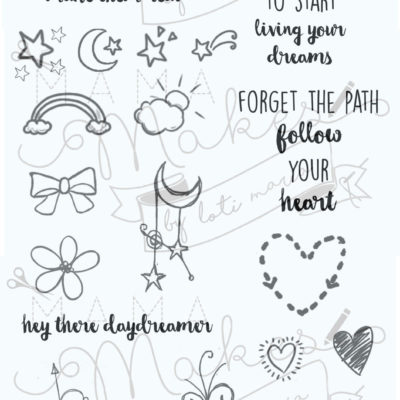 TO START
living your
dreams
FORGET THE PATH
follow
YOUR
heart
hey there daydreamer
MAMA
Makes
by loti mari
MAMA
Makes